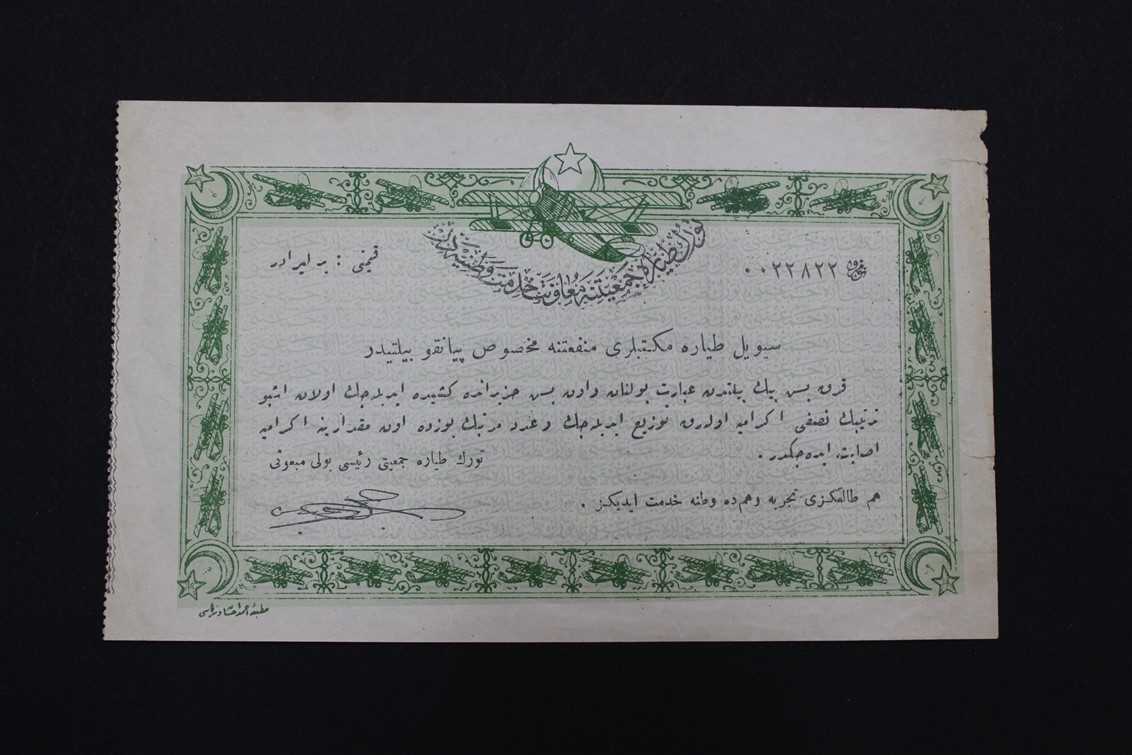 تورك طياره جمعيتنه معاونت خدمت وطنيه در
نومرو ٠٠٢٢٨٢٢
قيمتى : بر ليرادر
سيويل طياره مكتبلرى منفعتنه مخصوص پيانقو بيلتيدر
قرق بس بيك بيلتدن عبارت بولنان واون بس حزيرانده كشيده ايديله جك اولان اشبو
ترتيبك نصفى اكراميه اولارق توزيع ايديله جك وعدد مرتبك يوزده اون مقدارينه اكراميه
اصابت ايده جكدر .
تورك طياره جمعيتى رئيسى بولى مبعوثى
هم طالعكزى تجربه وهم ده وطنه خدمت ايديكز .